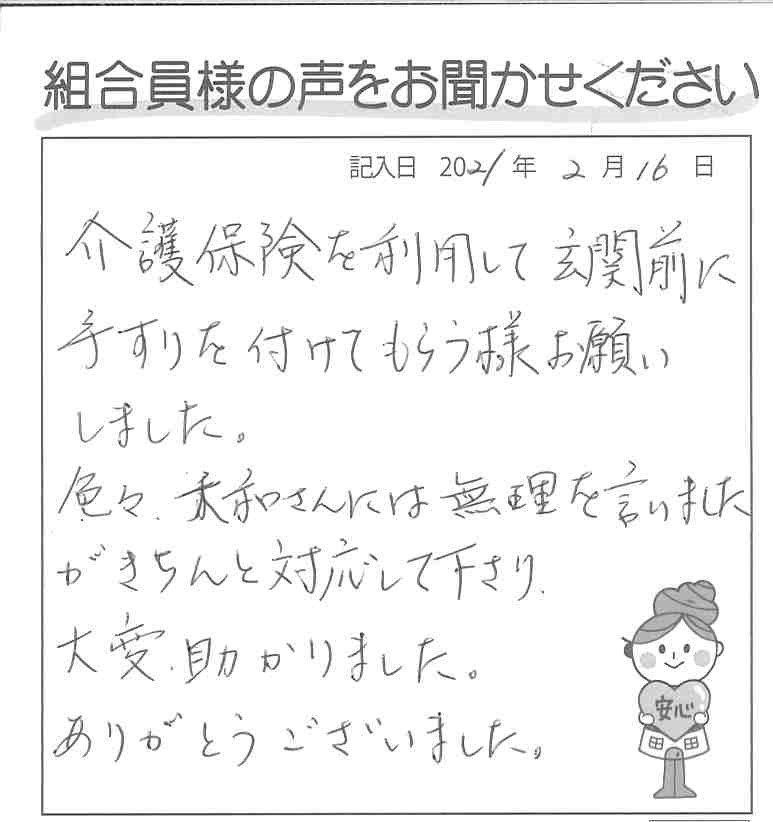 組合員様の声をお聞かせください
記入日 2021年 2月16日
介護保険を利用して玄関前に
手すりを付けてもらう様お願い
しました。
色々、美和さんには無理を言いました
がきちんと対応して下さり、
大変、助かりました。
ありがとうございました。
安心